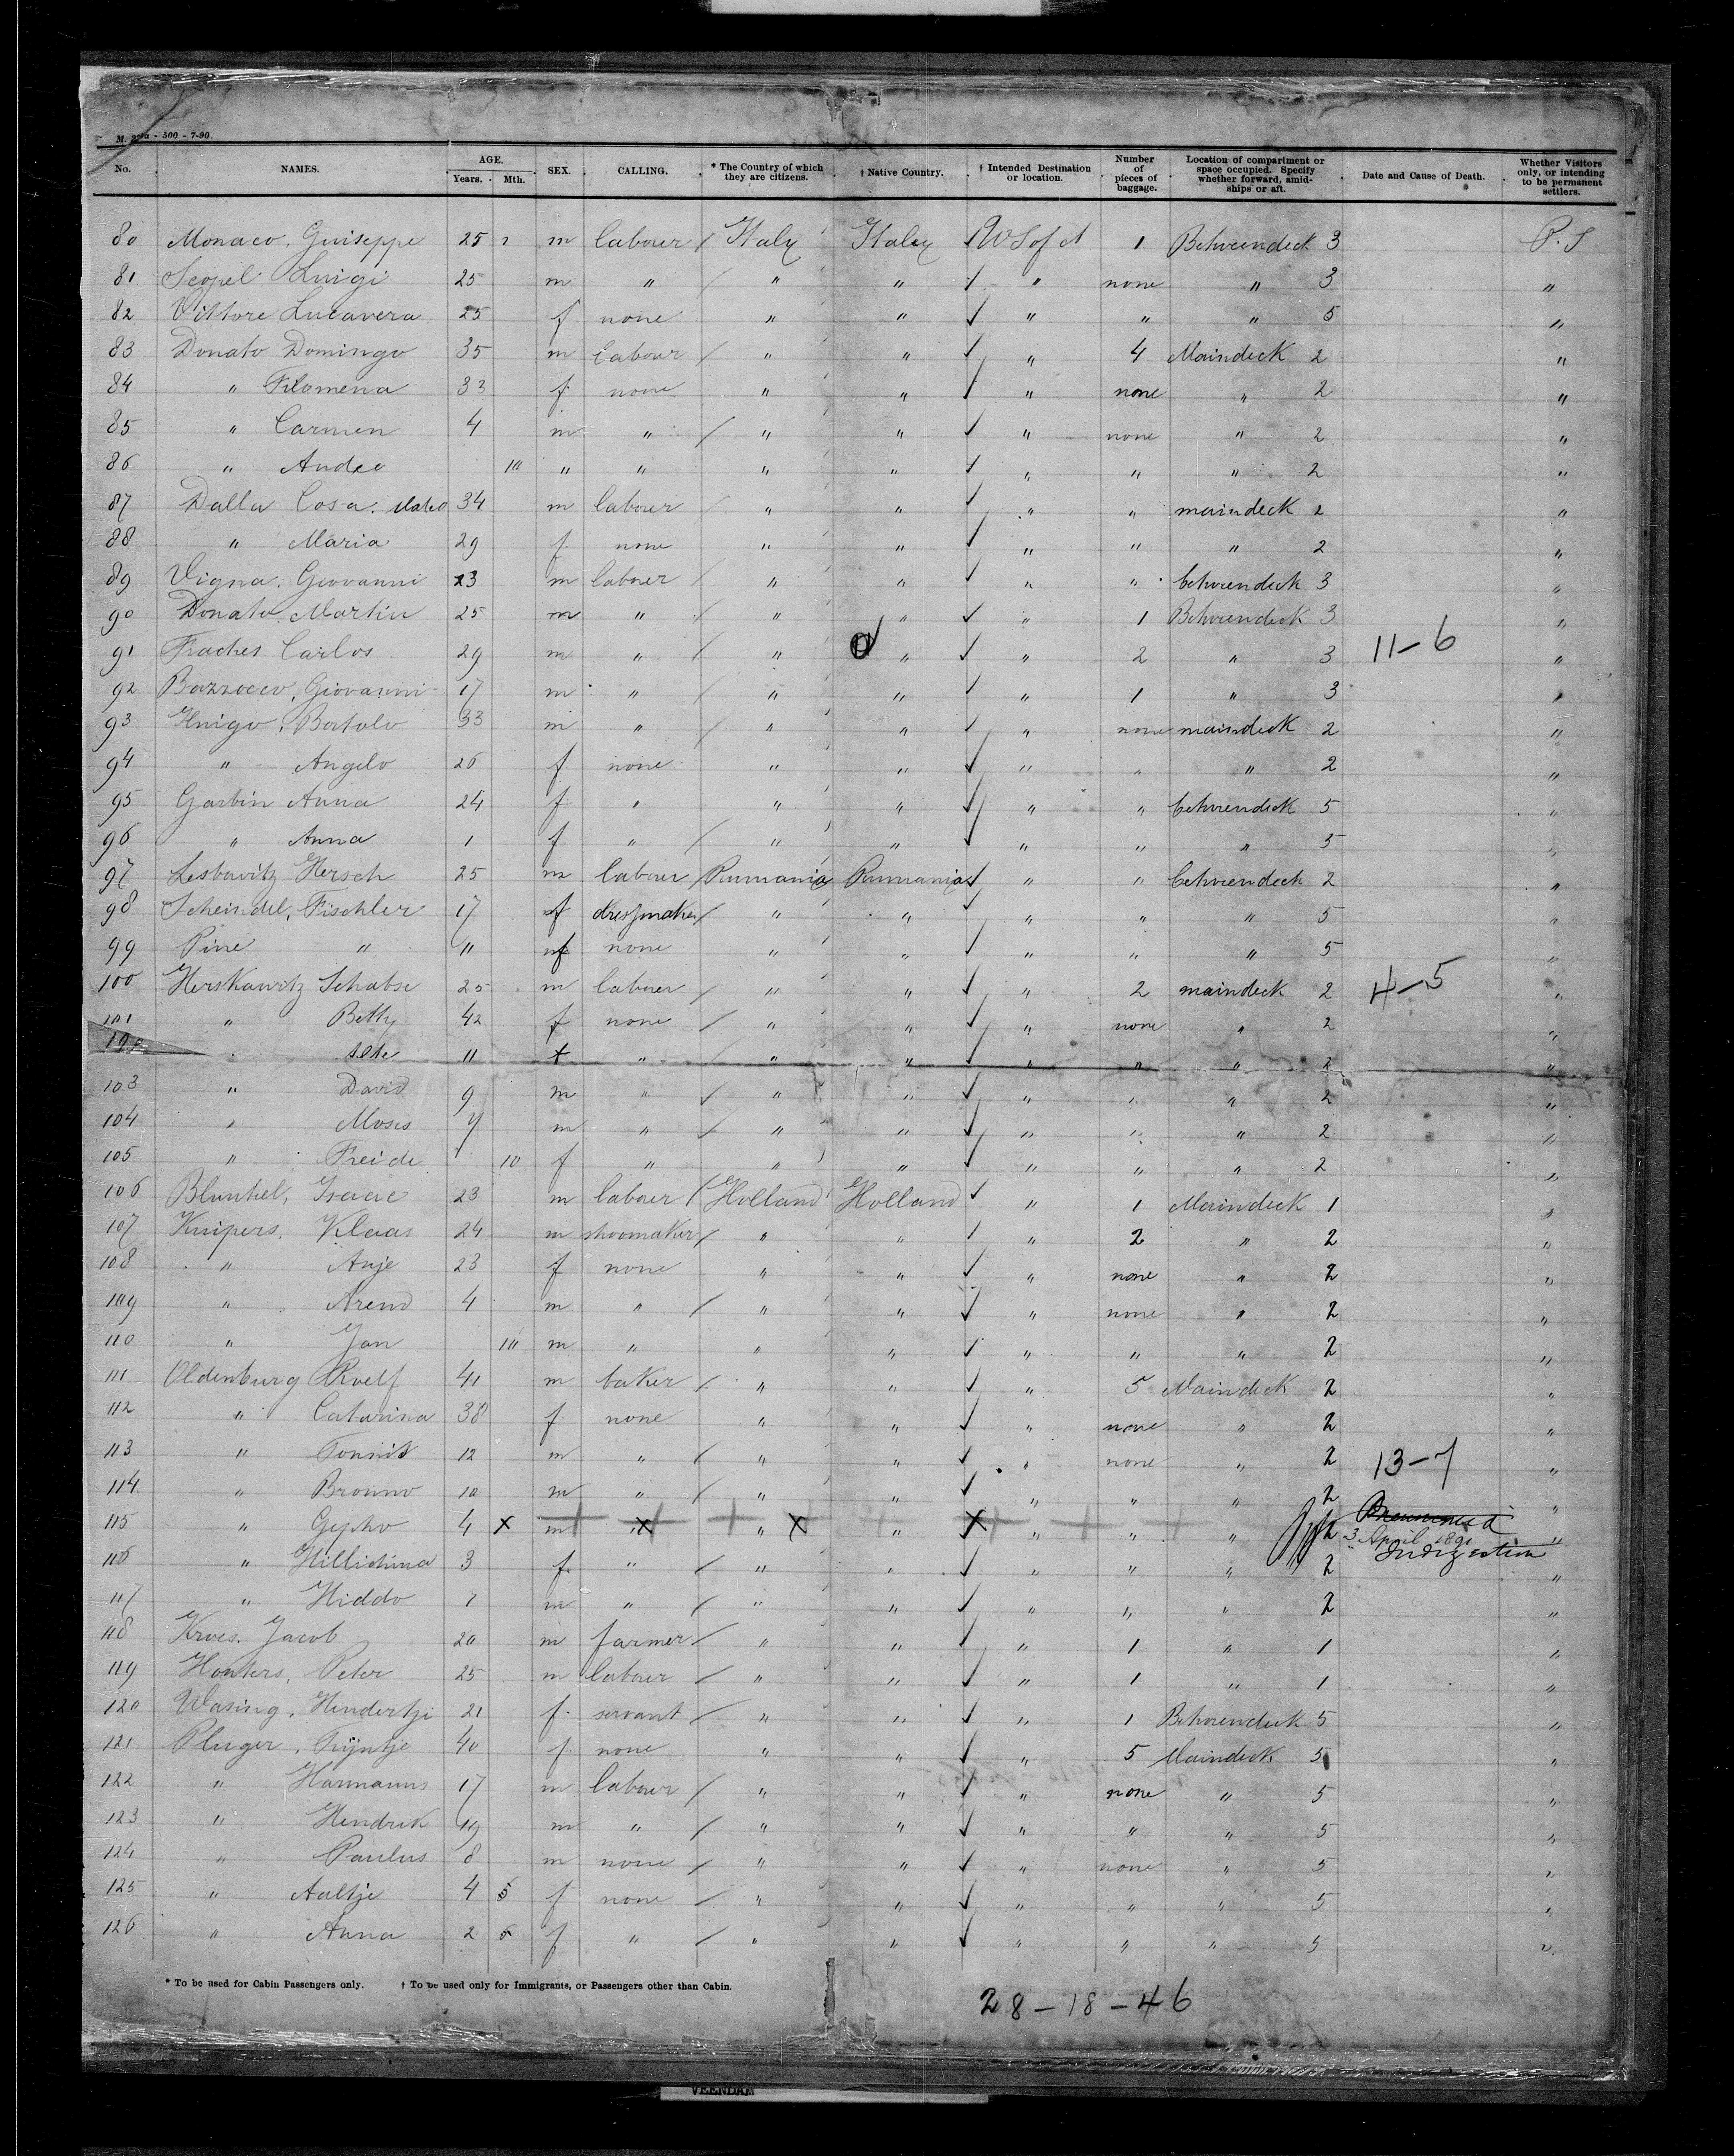 M. 27a - 500 - 7-90.
No. NAMES. AGE. Years. Mth. SEX. CALLING. * The Country of which they are citizens. † Native Country. † Intended Destination or location. Number of pieces of baggage. Location of compartment or space occupied. Specify whether forward, amidships or aft. Date and Cause of Death. Whether Visitors only, or intending to be permanent settlers.
80 Monaco, Guiseppe 25 m labourer / Italy Italy ✓ U S of A 1 Betweendeck 3 P. S
81 Luigi 25 m " / " " ✓ " none " 3 "
82 Vittore Lucavera 25 f none " " ✓ " " " 5 "
83 Donato Domingo 35 m Labourer / " " ✓ " 4 Maindeck 2 "
84 " Filomena 33 f none " " ✓ " none " 2 "
85 " Carmen 4 m " / " " ✓ " none " 2 "
86 " Andeo 10 " " " " ✓ " " " 2 "
87 Dalla Cosa. 34 m labourer / " " ✓ " " maindeck 2 "
88 " Maria 29 f none " " ✓ " " " 2 "
89 Vigna, Giovanni 23 m labourer / " " ✓ " " betweendeck 3 "
90 Donato Martin 25 m " / " " ✓ " 1 Betweendeck 3 "
91 Fraches Carlos 29 m " / " " ✓ " 2 " 3 11-6 "
92 Bazzocco, Giovanni 17 m " / " " ✓ " 1 " 3 "
93 Bortolo 33 m " / " " ✓ " none maindeck 2 "
94 " Angelo 26 f none " " ✓ " " " 2 "
95 Garbin Anna 24 f " " " ✓ " " betweendeck 5 "
96 " Anna 1 f " / " " ✓ " " " 5 "
97 Lesbovitz Hersch 25 m labourer / Rumania Rumania ✓ " " betweendeck 2 "
98 Scheindel, Fischler 17 f dressmaker / " " ✓ " " " 5 "
99 Pine " 11 f none " " ✓ " " " 5 "
100 Herskawitz Schabse 25 m labourer / " " ✓ " 2 maindeck 2 4-5 "
101 " Betty 42 f none / " " ✓ " none " 2 "
102 " 11 f " / " " ✓ " " " 2 "
103 " David 9 m " / " " ✓ " " " 2 "
104 " Moses 7 m " / " " ✓ " " " 2 "
105 " Freide 10 f " " " ✓ " " " 2 "
106 Isaac 23 m labourer / Holland Holland ✓ " 1 Maindeck 1 "
107 Kuipers, Klaas 24 m shoomaker / " " ✓ " 2 " 2 "
108 " Anje 23 f none " " ✓ " none " 2 "
109 " Arend 4 m " / " " ✓ " none " 2 "
110 " Jan 10 m " " " ✓ " " " 2 "
111 Oldenburg Roelf 41 m baker / " " ✓ " 5 Maindeck 2 "
112 " Catarina 38 f none " " ✓ " none " 2 "
113 " Tonnis 12 m " / " " ✓ " none " 2 13-7 "
114 " Bronno 10 m " / " " ✓ " " " 2 "
115 " Gepko 4 x m " x " x " x " " " 2 3 April 1891 Indigestion "
116 " Hillichina 3 f " / " " ✓ " " " 2 "
117 " Hiddo 1 m " / " " ✓ " " " 2 "
118 Kroes, Jacob 20 m farmer / " " ✓ " 1 " 1 "
119 Houters, Peter 25 m labourer / " " ✓ " 1 " 1 "
120 Wasing, Hendertje 21 f servant / " " ✓ " 1 Betweendeck 5 "
121 Pluger, Trijntje 40 f none " " ✓ " 5 Maindeck 5 "
122 " Harmanns 17 m labourer / " " ✓ " none " 5 "
123 " Hendrik m " / " " ✓ " " " 5 "
124 " Paulus 8 m none / " " ✓ " none " 5 "
125 " Aaltje 4 5 f none / " " ✓ " " " 5 "
126 " Anna 2 6 f " / " " ✓ " " " 5 "
* To be used for Cabin Passengers only. † To be used only for Immigrants, or Passengers other than Cabin.
28-18-46
VEENDAM